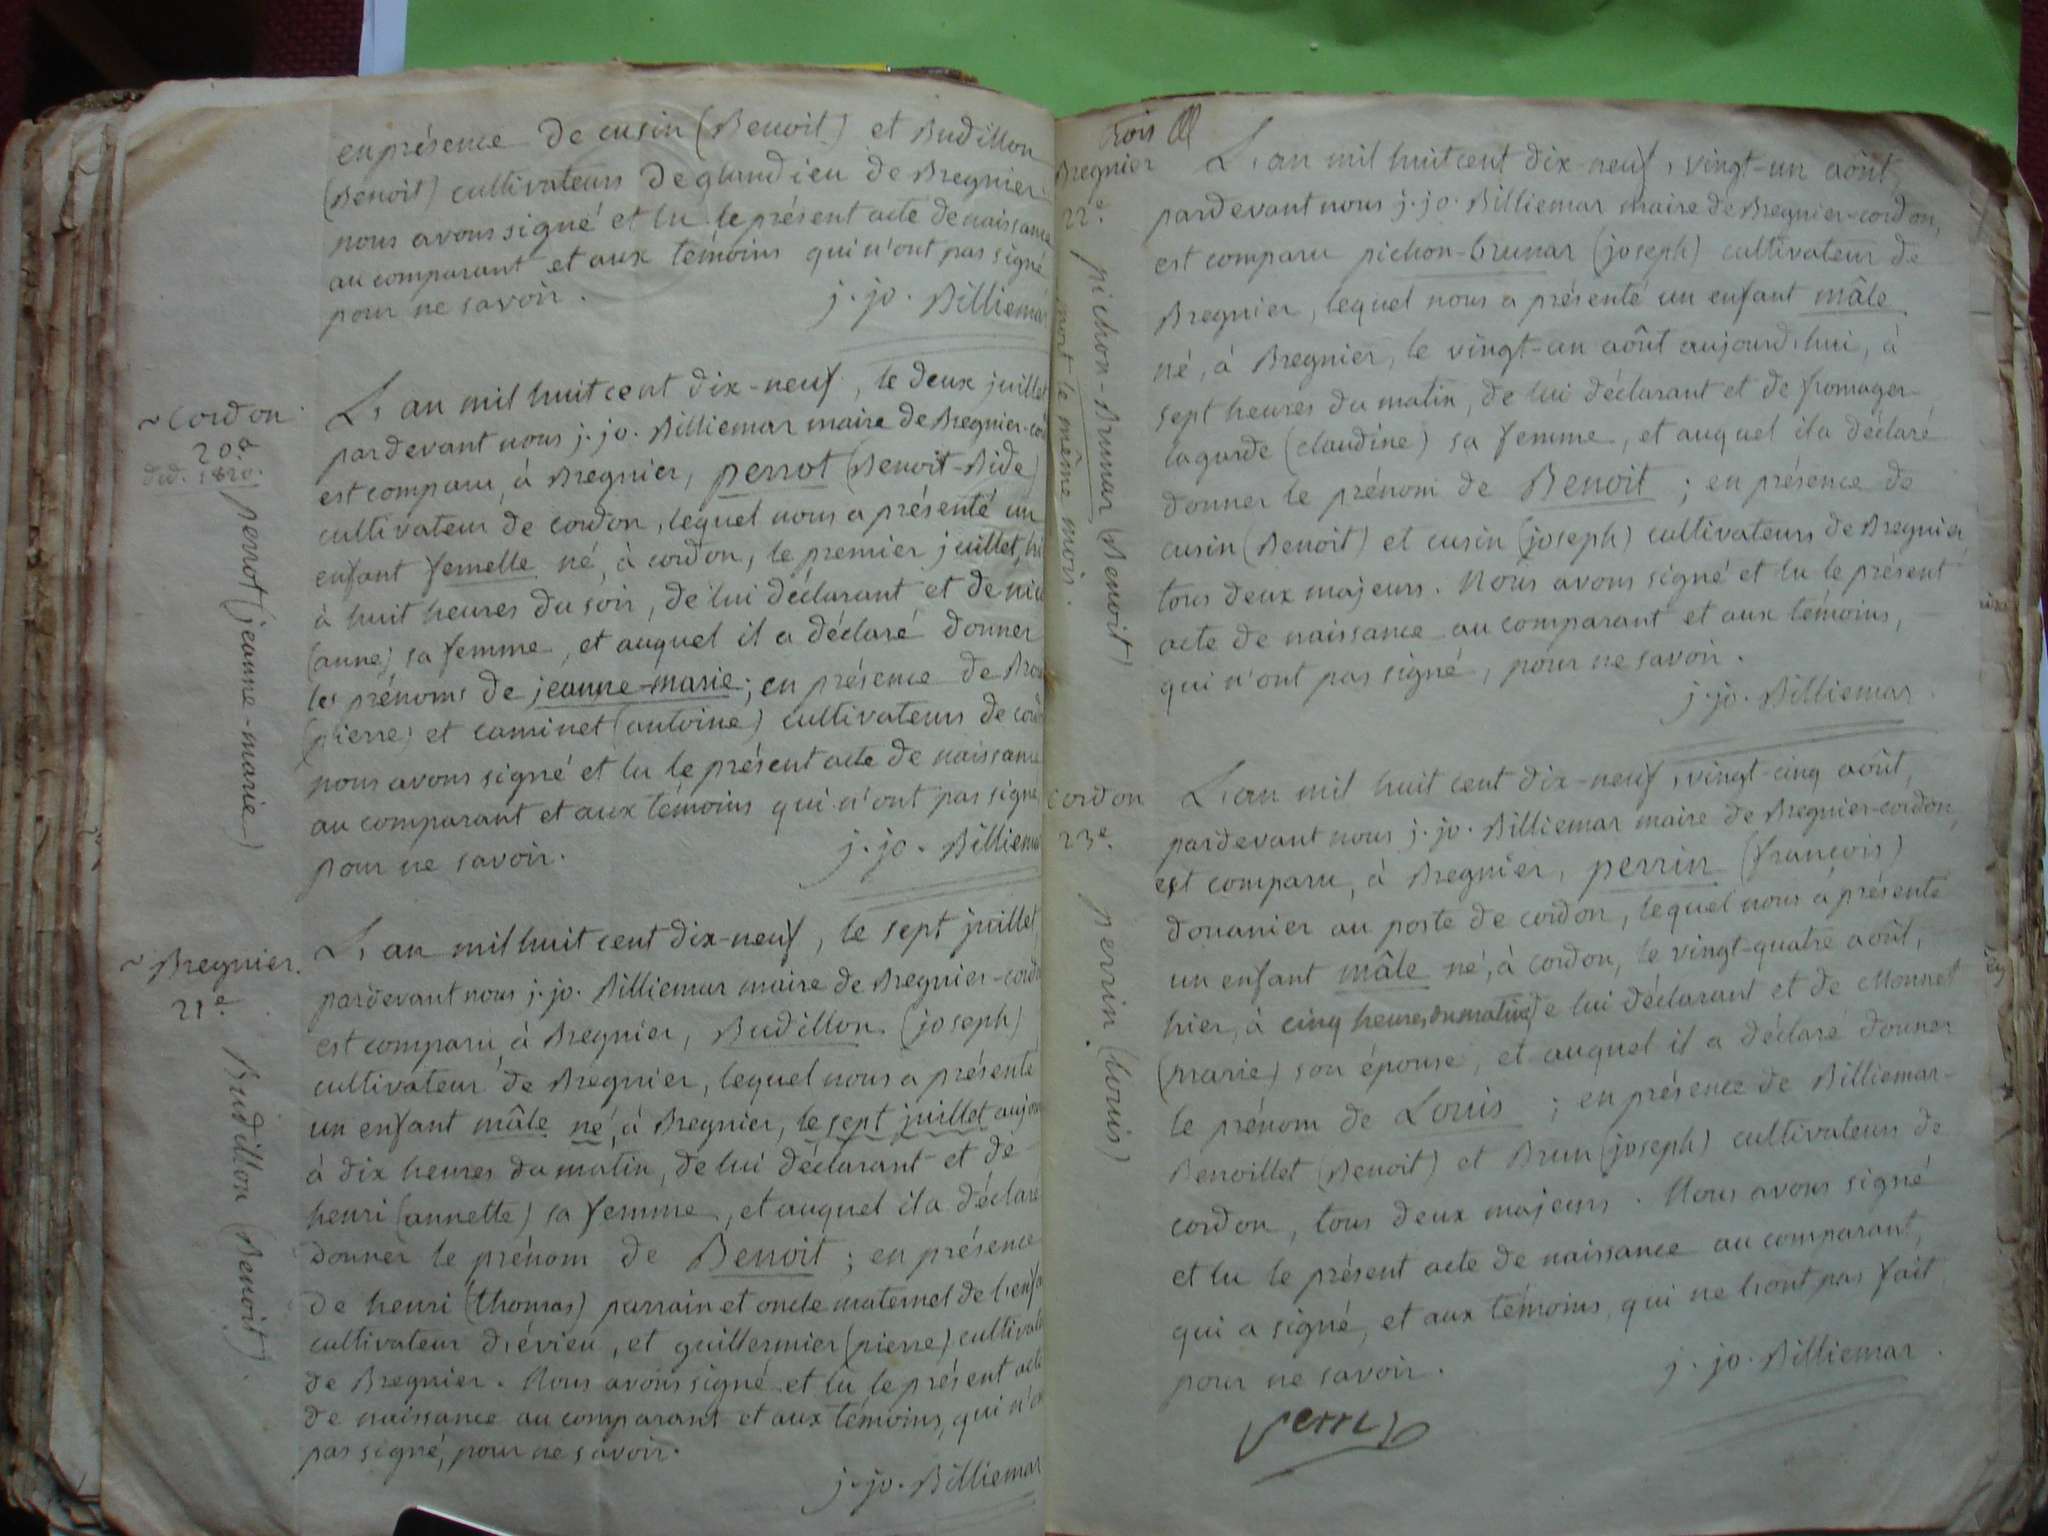 en présence de cusin (Benoit) et Budillon
(Benoit) cultivateurs de glandieu de Bregnier
nous avons signé et lu le présent acte de naissance
au comparant et aux témoins qui n'ont pas signé
pour ne savoir.
j. jo. Billiemar
~ Cordon
20.e
déd. 1820.
perrot (jeanne-marie)
L, an mil huit cent dix-neuf, le deux juillet
pardevant nous j. jo. Billiemar maire de Bregnier-cor
est comparu, à Bregnier, perrot (Benoit-Bide)
cultivateur de cordon, lequel nous a présenté un
enfant femelle né, à cordon, le premier juillet, hi
à huit heures du soir, de lui déclarant et de
(anne) sa femme, et auquel il a déclaré donner
les prénoms de jeanne-marie; en présence de
(pierre) et caminet (antoine) cultivateurs de cord
nous avons signé et lu le présent acte de naissance
au comparant et aux témoins qui n'ont pas signé
pour ne savoir.
j. jo. Billiemar
~ Bregnier.
21.e
Budillon (Benoit)
L, an mil huit cent dix-neuf, le sept juillet
pardevant nous j. jo. Billiemar maire de Bregnier-cordo
est comparu, à Bregnier, Budillon (joseph)
cultivateur de Bregnier, lequel nous a présenté
un enfant mâle né, à Bregnier, le sept juillet aujou
à dix heures du matin, de lui déclarant et de
henri (annette) sa femme, et auquel il a déclaré
donner le prénom de Benoit; en présence
de henri (thomas) parrain et oncle maternel de l,enfa
cultivateur d,évieu, et guillermier (pierre) cultivat
de Bregnier. Nous avons signé et lu le présent acte
de naissance au comparant et aux témoins, qui n'o
pas signé, pour ne savoir.
j. jo. Billiemar
trois
Bregnier
22.e
pichon-Brunar (Benoit)
mort le même mois.
L, an mil huit cent dix-neuf, vingt-un août,
pardevant nous j. jo. Billiemar maire de Bregnier-cordon,
est comparu pichon-brunar (joseph) cultivateur de
Bregnier, lequel nous a présenté un enfant mâle
né, à Bregnier, le vingt-un août aujourd,hui, à
sept heures du matin, de lui déclarant et de fromager-
lagarde (claudine) sa femme, et auquel il a déclaré
donner le prénom de Benoit; en présence de
cusin (Benoit) et cusin (joseph) cultivateurs de Bregnier
tous deux majeurs. Nous avons signé et lu le présent
acte de naissance au comparant et aux témoins,
qui n'ont pas signé, pour ne savoir.
j. jo. Billiemar
cordon
23.e
perrin. (Louis)
L, an mil huit cent dix-neuf, vingt-cinq août,
pardevant nous j. jo. Billiemar maire de Bregnier-cordon,
est comparu, à Bregnier, perrin (françois)
douanier au poste de cordon, lequel nous a présenté
un enfant mâle né, à cordon, le vingt-quatre août,
hier, à cinq heures du matin, de lui déclarant et de Monnet
(marie) son épouse, et auquel il a déclaré donner
le prénom de Louis; en présence de Billiemar-
Benoillet (Benoit) et Brun (joseph) cultivateurs de
cordon, tous deux majeurs. Nous avons signé
et lu le présent acte de naissance au comparant,
qui a signé, et aux témoins, qui ne l,ont pas fait
pour ne savoir.
j. jo. Billiemar
perrin